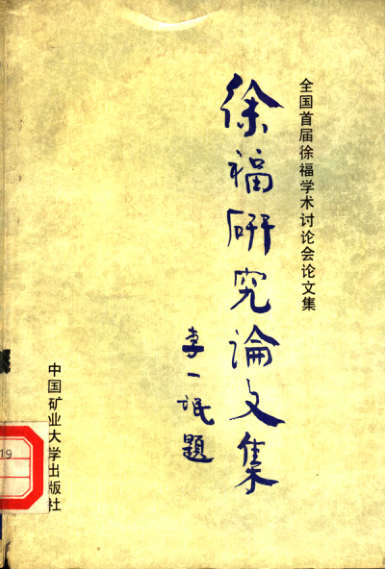 全国首届徐福学术讨论会论文集
徐福研究論文集
李一氓題
中国矿业大学出版社
19